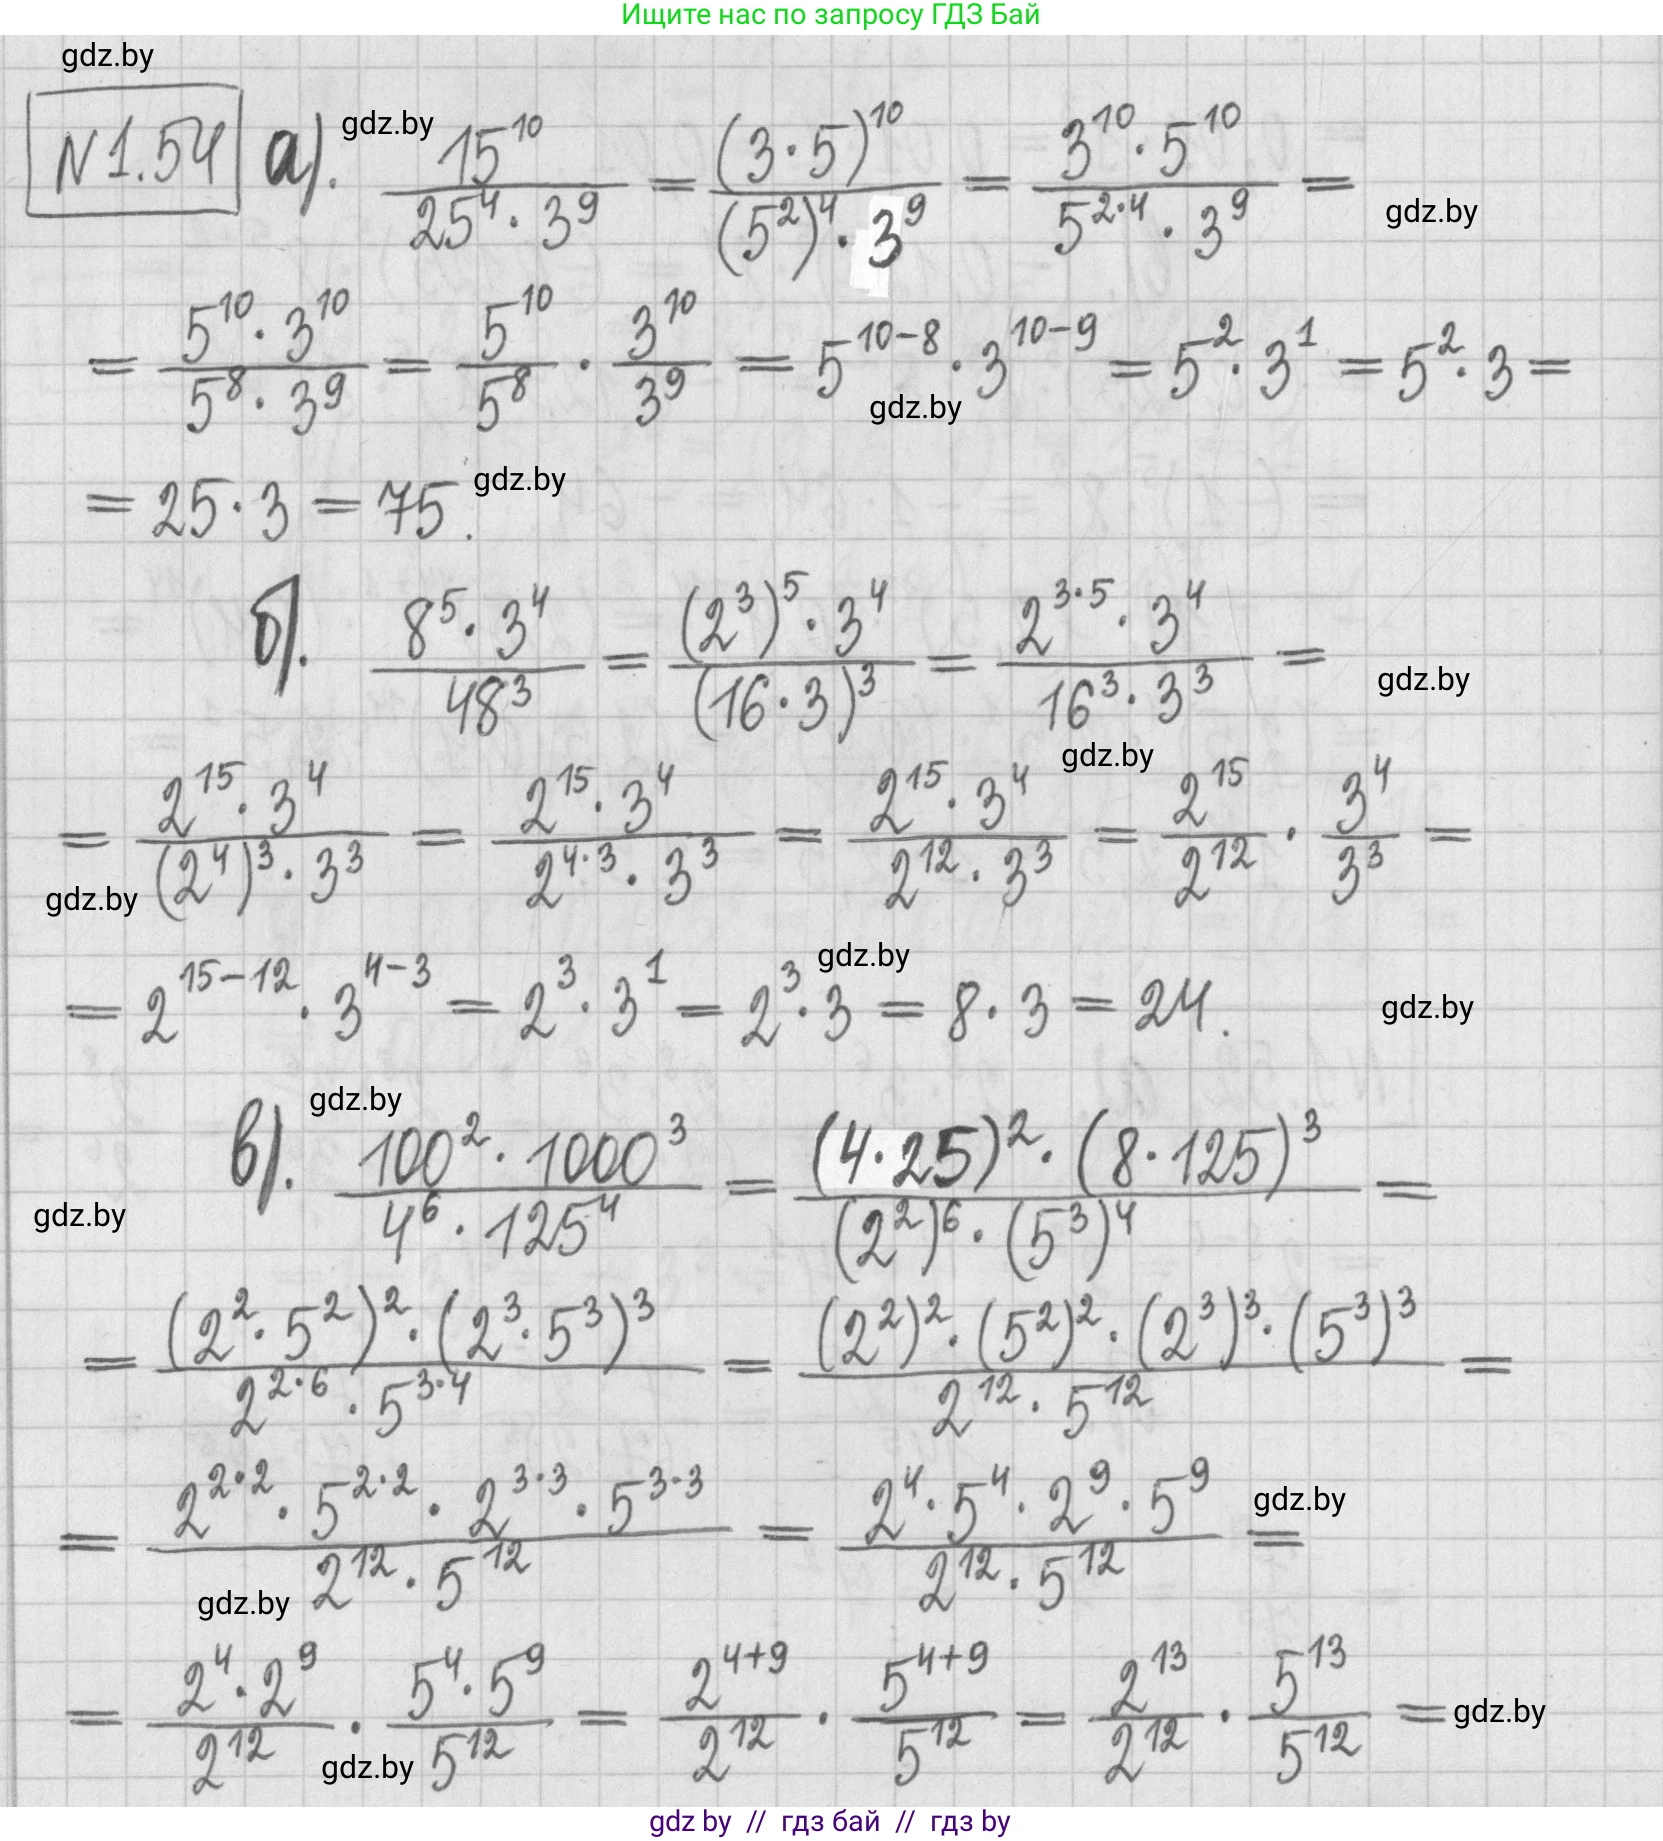 Ищите нас по запросу ГДЗ Бай
gdz.by
N1.54 а). gdz.by 15^10 / (25^4 · 3^9) = (3·5)^10 / ((5^2)^4 · 3^9) = (3^10 · 5^10) / (5^(2·4) · 3^9) = gdz.by
= (5^10 · 3^10) / (5^8 · 3^9) = 5^10 / 5^8 · 3^10 / 3^9 = 5^(10-8) · 3^(10-9) = 5^2 · 3^1 = 5^2 · 3 =
gdz.by
= 25 · 3 = 75. gdz.by
б). (8^5 · 3^4) / 48^3 = ((2^3)^5 · 3^4) / (16·3)^3 = (2^(3·5) · 3^4) / (16^3 · 3^3) = gdz.by
gdz.by
= (2^15 · 3^4) / ((2^4)^3 · 3^3) = (2^15 · 3^4) / (2^(4·3) · 3^3) = (2^15 · 3^4) / (2^12 · 3^3) = 2^15 / 2^12 · 3^4 / 3^3 =
gdz.by
gdz.by
= 2^(15-12) · 3^(4-3) = 2^3 · 3^1 = 2^3 · 3 = 8 · 3 = 24. gdz.by
gdz.by
в). (100^2 · 1000^3) / (4^6 · 125^4) = ((4·25)^2 · (8·125)^3) / ((2^2)^6 · (5^3)^4) =
gdz.by
= ((2^2 · 5^2)^2 · (2^3 · 5^3)^3) / (2^(2·6) · 5^(3·4)) = ((2^2)^2 · (5^2)^2 · (2^3)^3 · (5^3)^3) / (2^12 · 5^12) =
= (2^(2·2) · 5^(2·2) · 2^(3·3) · 5^(3·3)) / (2^12 · 5^12) = (2^4 · 5^4 · 2^9 · 5^9) / (2^12 · 5^12) = gdz.by
gdz.by
= (2^4 · 2^9) / 2^12 · (5^4 · 5^9) / 5^12 = 2^(4+9) / 2^12 · 5^(4+9) / 5^12 = 2^13 / 2^12 · 5^13 / 5^12 = gdz.by
gdz.by
gdz by // гдз бай // гдз by